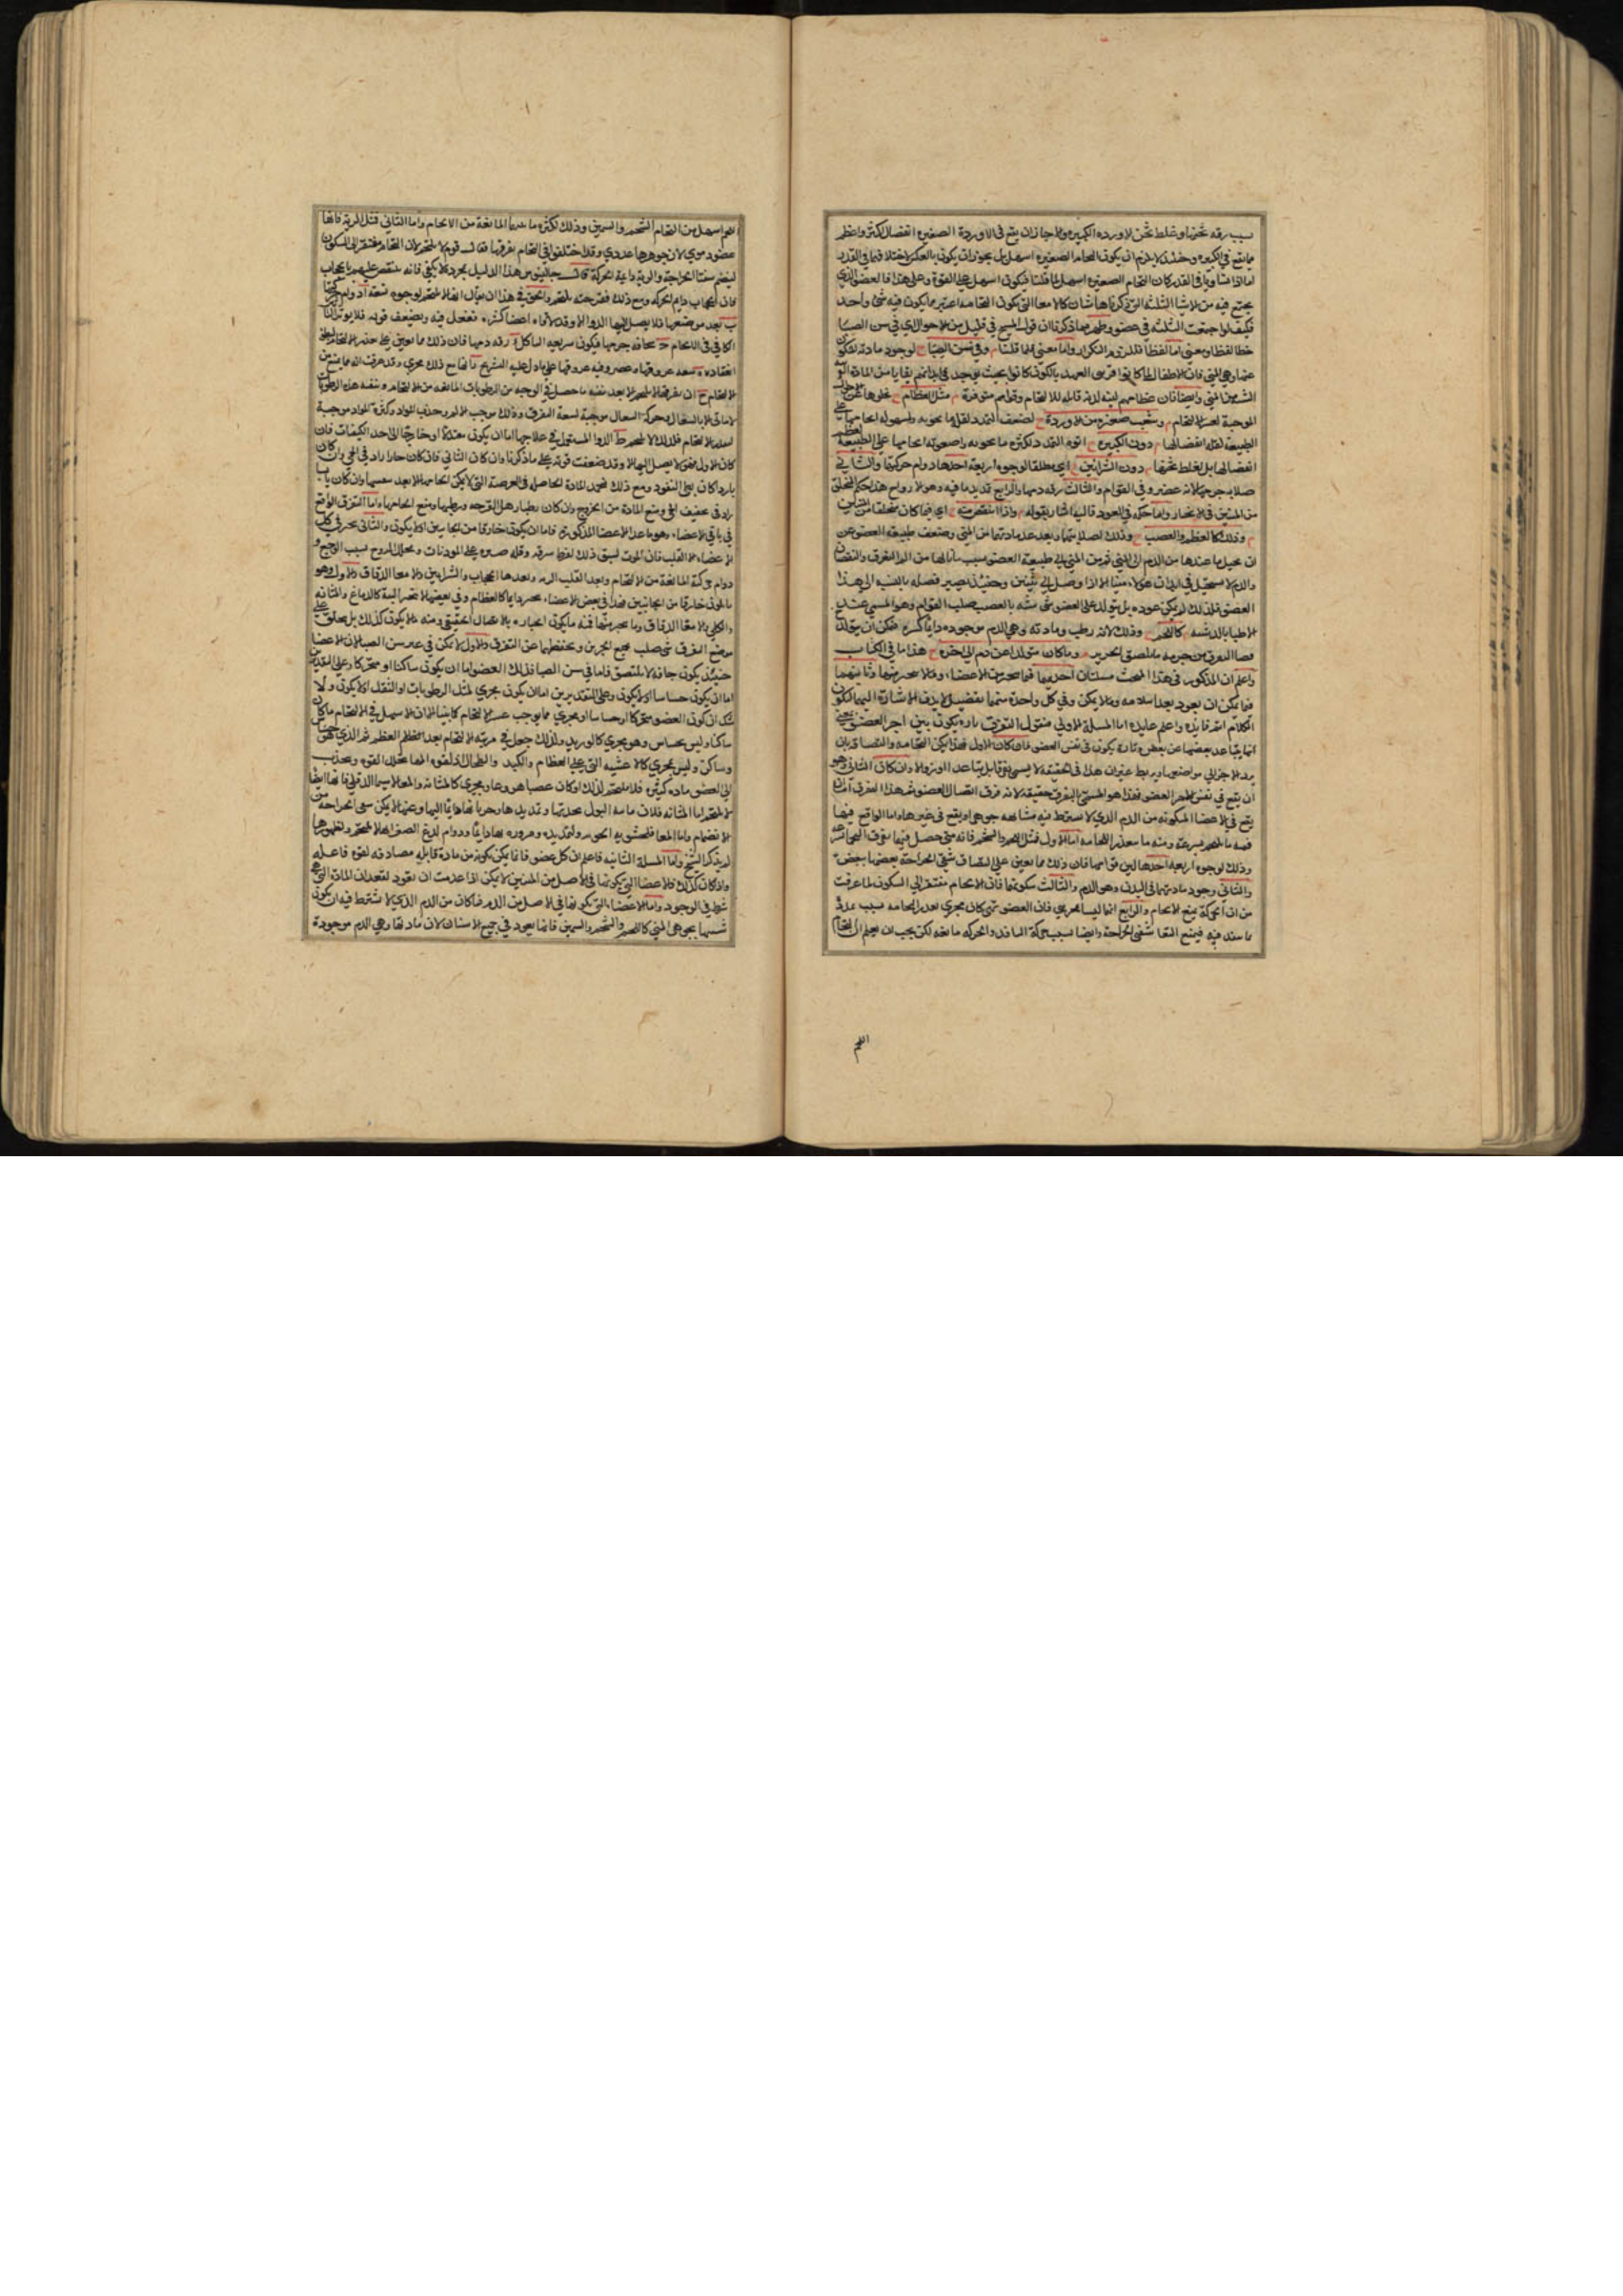 بسبب رقه نحرها وغلط نحن الاورده الكبيره ولما جاز ان يقع في الاوردة الصغيره انفصال اكثر واعظم
مما يقع في الكبيره وحينئذ لا يلزم ان يكون التحام الصغيره اسهل بل يجوز ان يكون بالعكس لاختلافهما في القدر
اما اذا تساويا في القدر كان التحام الصغيره اسهل لما قلنا فيكون اسهل على القوة وعلى هذا فالعضو الذي
يجتمع فيه من الاشيا الثلثه التي ذكرناها شان كالامعا التي يكون التحامه اعسر مما يكون فيه شئ واحد
فكيف لو اجتمعت الثلثه في عضو وظهر مما ذكرنا ان قول المسيح في قليل من الاحوال اي في سن الصبا
خطا لفظا ومعنى اما لفظا فللزوم التكرار واما معنى فلما قلنا وفي سن الصبا لوجود مادته لتكو
عضاوهي المني فان الاطفال لما كانوا قريبي العهد بالكون كانوا بحيث يوجد في ابدانهم بقايا من المادة
الشبيهة بالمني وايضا فان عظامهم لينه لدنه قابله للالتحام وقواهم متوفرة مثل العظام لخلوها عن
الموجبة لعسر الالتحام وشعب صغيره من الاوردة لضعف التمدد لقلة ما تحويه ولسهولة الحامها على
الطبيعة لقلة انفصالها دون الكبيره لقوه التمدد لكثرة ما تحويه ولصعوبة الحامها على الطبيعة
انفصالها بل لغلط نحرها دون الشرايين اي مطلقا لوجوه اربعة احدها دوام حركتها والثاني
صلابه جرمها لانه عصبي في القوام والثالث رقه دمها والرابع تمديد ما فيه وهو الروح هذا حكم المتخلق
من المنيين في الانجبار واما حكمه في العود فاليه اشار بقوله واذا انتقصت اي فيما كان متخلقا من المنيين
وذلك كالعظم والعصب وذلك لصلابتها وبعد عهد مادتها من المني وضعف طبيعة العضو عن
ان يحيل ما عندها من الدم الى المني قريب المني الى طبيعة العضو بسبب ما نالها من الم التفرق والنقصان
والدم لا يستحيل في ابدان هؤلاء منيا الا اذا وصل الى الانثيين وحينئذ يصير فضله بالنسبه الى هذا
العضو فلذلك لم يكن عوده بل يتولد على العضو شئ شبه بالعصب صلب القوام وهو المسمى عند
الاطبا بالدشبد كاللحم وذلك لانه رطب ومادته وهي الدم موجوده دايما كثيره فكن ان يتولد
فضا التفرق بين جرمه ما يلصق الحريز وما كان متولدا عن دم الى اخره هذا ما في الكتاب
واعلم ان المذكور في هذا المبحث مسئلتان احديهما فيما ينجبر من الاعضاء وما لا ينجبر منها وثانيتهما
فيما يمكن ان يعود بعد انعدامه وما لا يمكن وفي كل واحدة منهما تفصيل لابد من الاشارة اليها ليكون
الكلام اتم فايدة واعم عايدة اما المسئلة الاولى فنقول التفرق تارة يكون بين اجزا العضو بمعنى
انما يتباعد بعضها عن بعض وتارة يكون في نفس العضو فان كان الاول فهذا يكون التحامه والتصاقه بان
يرد الاجزا الى مواضعها ويربط غير ان هذا في الحقيقة لا يسمى تفرقا بل تباعد الوضع والا وان كان الثاني وهو
ان يقع في نفس جوهر العضو فهذا هو المسمى بالتفرق حقيقة لانه فرق اتصال العضو ثم هذا التفرق اما ان
يقع في الاعضا المتكونة من الدم الذي لا يشترط فيه مشابهه جوهر المني او يقع في غيرها واما الواقع فيها
فمنه ما يلتحم بسرعة ومنه ما يتعذر التحامه اما الاول فمثل اللحم والشحم فانه متى حصل فيها تفرق التحما
وذلك لوجوه اربعه احدها لين قوامهما فان ذلك مما يعين على التصاق شفتي الجراحة بعضها ببعض
والثاني وجود مادتهما في البدن وهو الدم والثالث سكونهما فان الالتحام مفتقر الى السكون لما عرفت
من ان الحركة تمنع الالتحام والرابع انها ليسا بمجرى فان العضو متى كان مجرى تعذر التحامه بسبب عدة
ما ينفذ فيه فيمنع التقا شفتي الجراحة وايضا بسبب حركة النافذ والحركة مانعه لكن يجب ان يعلم ان التحام
اللحم
اللحم اسهل من التحام الشحم والسمين وذلك لكثرة ما فيهما المانعة من الالتحام واما الثاني فمثل الرية فانها
عضو دموي لان جوهرها غددي وقد اختلفوا في التحام تفرقها فقال قوم لا يلتحم لان التحام مفتقر الى السكون
لينضم شفتا الجراحة والرية دايمة الحركة قال جالينوس هذا الدليل بمجرده لا يكفي فانه ينتقض عليهم بالحجاب
فان الحجاب دايم الحركه ومع ذلك فقرحته تلتحم والحق في هذا ان يقال انها لا تلتحم لوجوه تسعة ا دوام حركتها
ب بعد موضعها فلا يصل اليها الدوا الا وقد لاقاه اعضا كثيره تفعل فيه وتضعف قوته فلا يوثر التاثير
الكافي في الالتحام ج سخافه جرمها فيكون سريعة التاكل د رقه دمها فان ذلك مما يعين على عدم الالتحام لبطؤ
انعقاده ه سعه عروقها و عضروفيه عروقها على ما دل عليه التشريح ز انها مع ذلك مجرى وقد عرفت انه مما يمنع من
الالتحام ح ان تفرقها لا يلتحم الا بعد نقيه ما حصل في الوجيه من الرطوبات المانعه من الالتحام ونقيه هذه الرطوبات
لا تاتى الا بالسعال وحركة السعال موجبة لسعة التفرق وذلك موجب الالم وجذب المواد وكثرة المواد موجبة
لعدم الالتحام فلذلك لا تلتحم ط الدوا المستعمل في علاجها اما ان يكون معتدلا او خارجا الى احد الكيفيات فان
كان الاول فهو لا يصل اليها الا وقد ضعفت قوته على ما ذكرنا وان كان الثاني فان كان حارا زاد في الحمى وان كان
باردا كان بطي النفوذ ومع ذلك فجمد المادة الحاصله في القرحة التي لا يمكن التحامها الا بعد نفثها وان كان يابسا
زاد في تجفيف الحمى ومنع المادة من الخروج وان كان رطبا رهل القرحه ورطبها ومنع التحامها واما التفرق الواقع
في باقي الاعضاء وهو ما عدا الاعضا المذكوره فاما ان يكون خارقا من الجانبين او لا يكون والثاني ينجبر في كل
الاعضاء الا القلب فان الموت يسبق ذلك لفرط شرفه وقلة صبره على الموذيات وتحلل الروح بسبب الوجع و
دوام حركته المانعة من الالتحام وبعد القلب الريه وبعدها الحجاب والشرايين والامعا الدقاق والاول وهو
ما يكون خارقا من الجانبين فهذا في بعض الاعضاء ينجبر دايما كالعظام وفي بعضها لا ينجبر البتة كالدماغ والمثانه
والكلى والامعا الدقاق وما ينجبر منها فمنه ما يكون انجباره بالاتصال الحقيقي ومنه ما لا يكون كذلك بل يتعلق على
موضع التفرق شئ صلب يجمع الجزءين ويحفظهما عن التفرق والاول لا يمكن في غير سن الصبا لان الاعضا
حينئذ يكون جافة لا تلتصق فاما في سن الصبا فذلك العضو اما ان يكون ساكنا او متحركا وعلى التقديرين
اما ان يكون حساسا او لا يكون وعلى التقديرين اما ان يكون مجرى لمثل الرطوبات او الثقل او لا يكون ولا
شك ان كون العضو متحركا او حساسا او مجرى مما يوجب عسر الالتحام كما بينا الان فالاسهل في الالتحام ما كان
ساكنا وليس بحساس وهو مجرى كالوريد ولذلك جعل في مرتبة الالتحام بعد العظم ثم الذي هو حساس
وساكن وليس بمجرى كالاغشيه التي على العظام والكبد والطحال فلقوه الحس تتحلل القوه وتجذب
الى العضو ماده كثيره فلا يلتحم لذلك او كان عصبا هو وعاء ومجرى كالمثانه والمعا لا سيما الدقيق فانها ايضا
لا تلتحم اما المثانه فلان ماسه البول بحدتها وتمديدها وحريانها دايما اليها وعنها لا يمكن شفتي الجراحة من
الانضمام واما المعا فلحشويه الجوهر والتمديده ومروره بها دايما ودوام لدغ الصفراء لها لا تلتحم ولظهورها
لم يذكر الشيخ واما المسئلة الثانيه فاعلم ان كل عضو فانما يمكن تكونه من مادة قابله مصادفه لقوة فاعله
واذا كان كذلك فالاعضا التي تكونها في الاصل من المنيين لا يمكن اذا عدمت ان تعود لفقدان المادة التي هي
شرط في الوجود واما الاعضاء التي تكونها في الاصل من الدم فما كان من الدم الذي لا يشترط فيه ان يكون
شبيها بجوهر المني كاللحم والشحم والسمين فانها يعود في جميع الاسنان لان مادتها وهي الدم موجودة